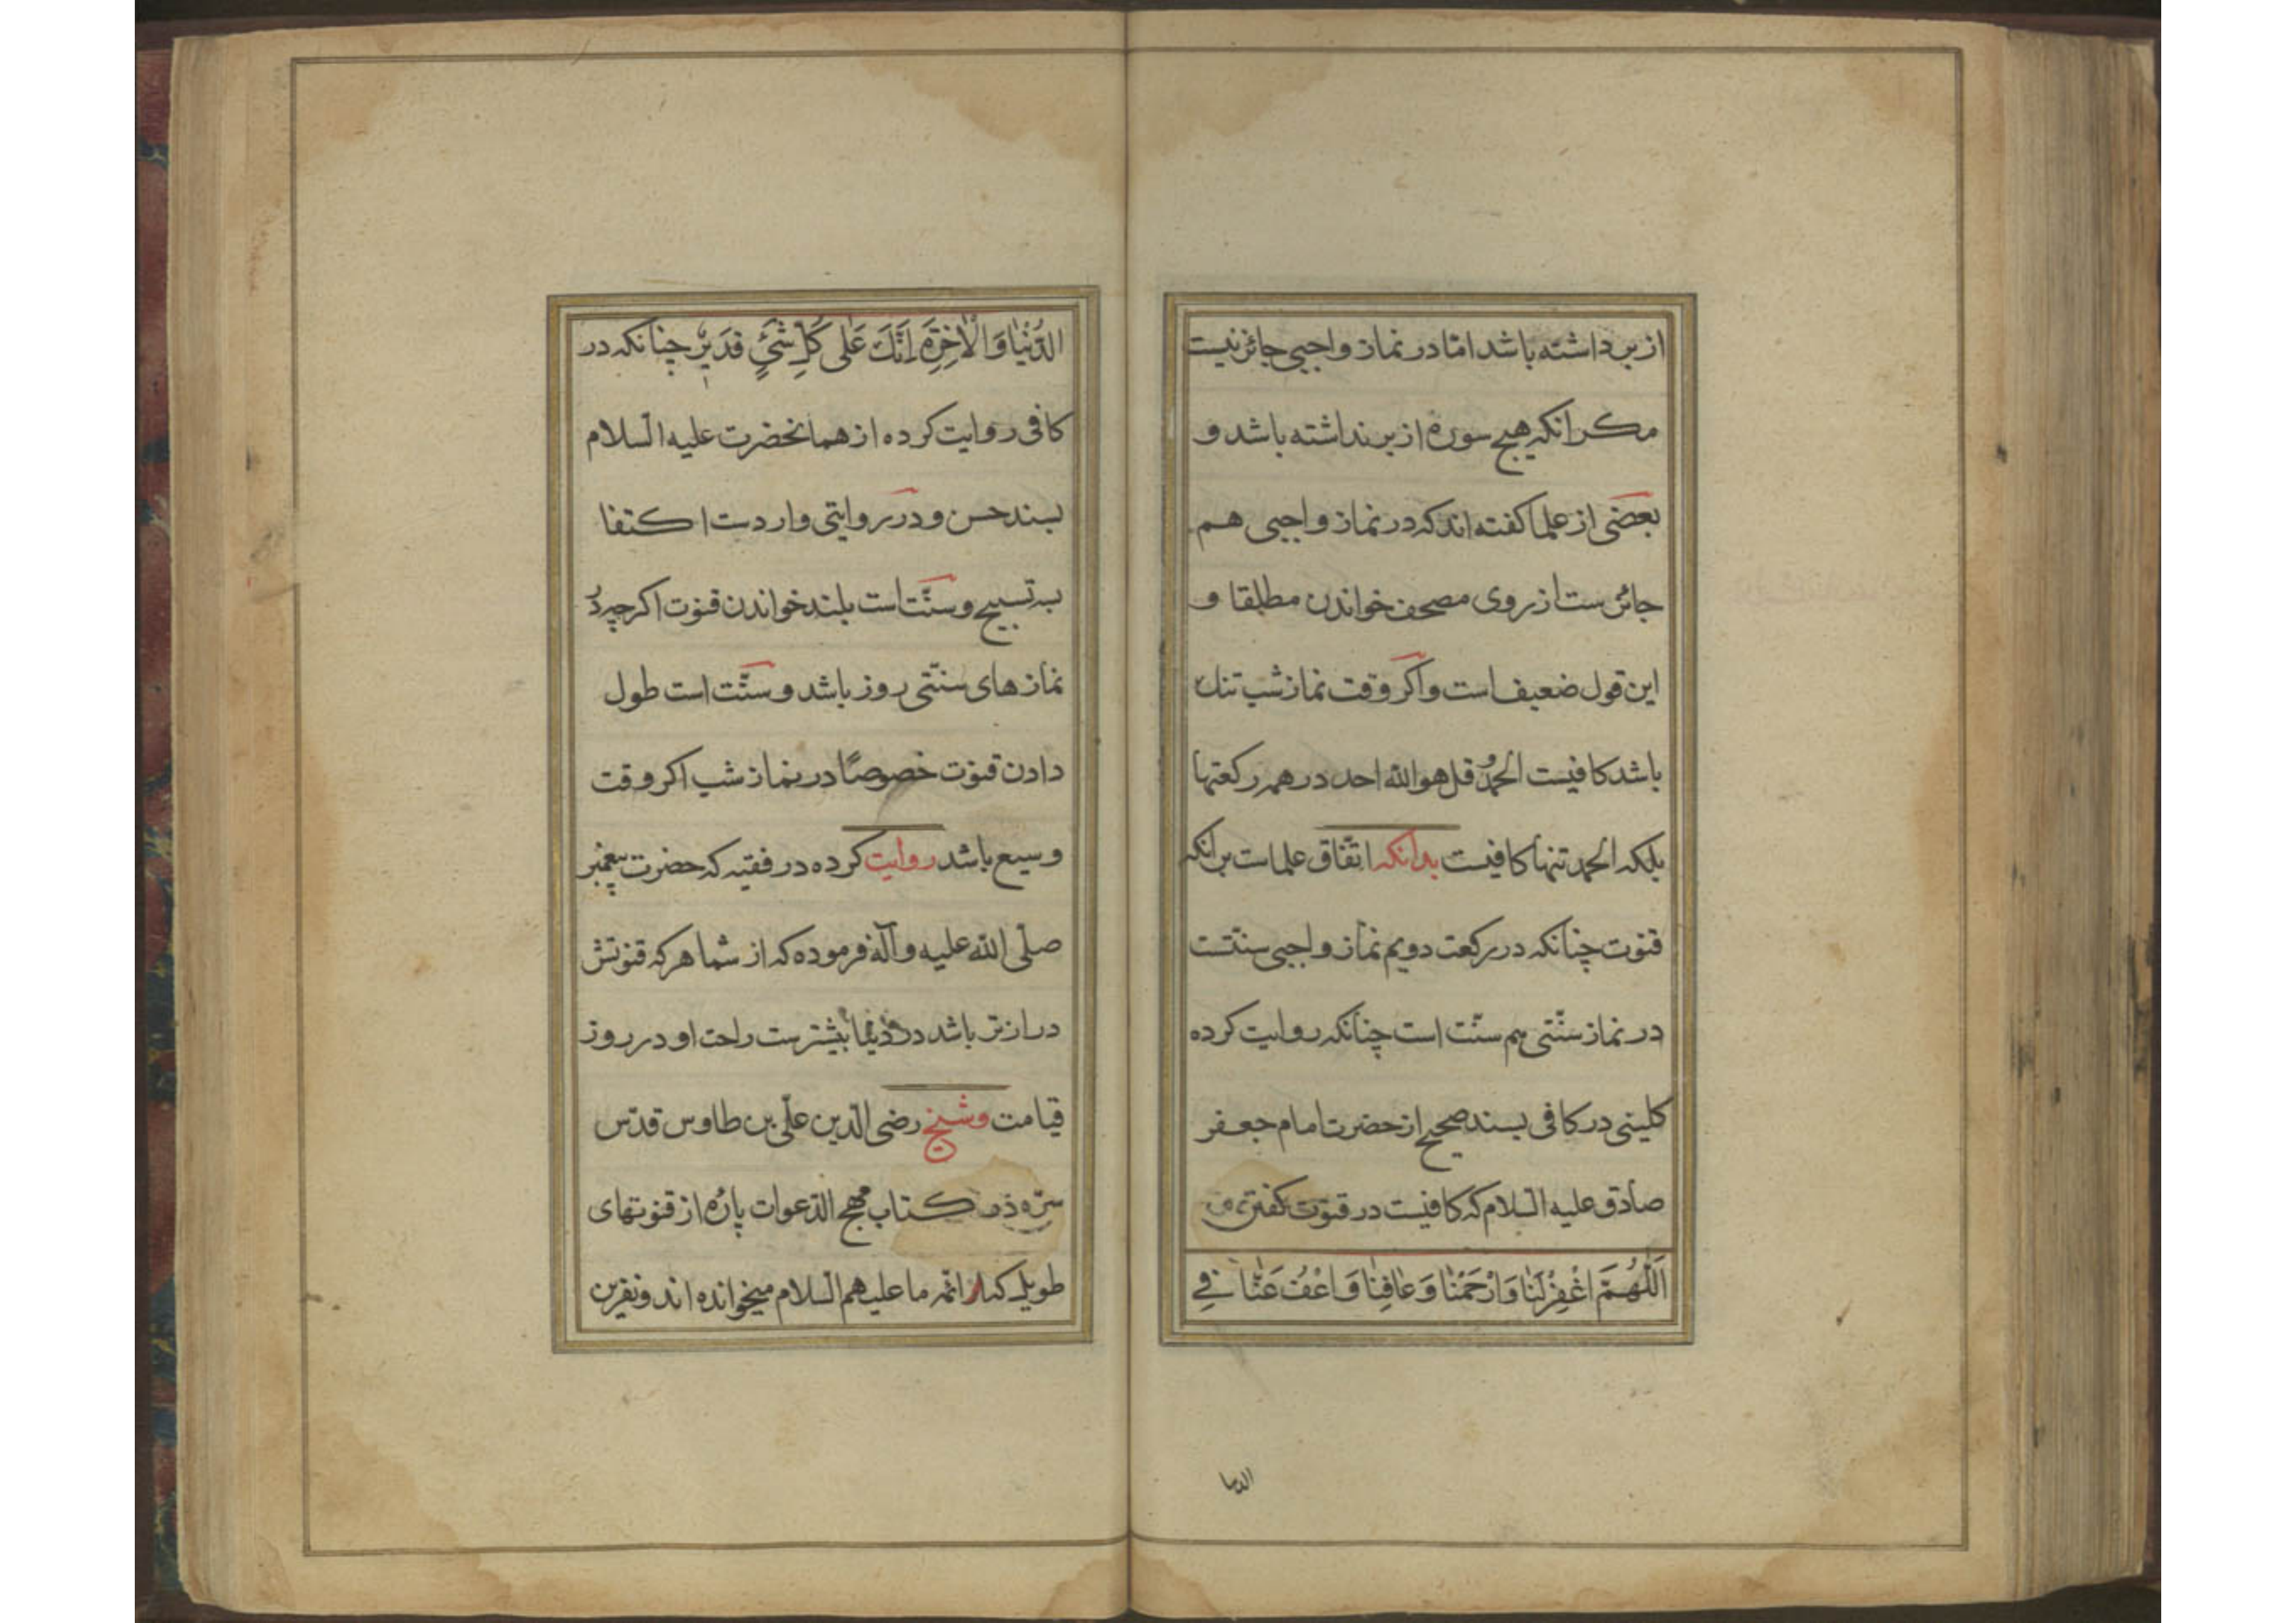 از بر داشته باشد امّا در نماز واجبی جائز نیست
مکر انکه هیچ سوره از بر نداشته باشد و
بعضی از علما کفته اند که در نماز واجبی هم
جائز ست از روی مصحف خواندن مطلقا و
این قول ضعیف است و اکر وقت نماز شب تنک
باشد کافیست الحمد و قل هو الله احد در همه رکعتها
بلکه الحمد تنها کافیست بدانکه اتفاق علماست بر انکه
قنوت چنانکه در رکعت دویم نماز واجبی سنتست
در نماز سنّتی هم سنّت است چنانکه روایت کرده
کلینی در کافی بسند صحیح از حضرت امام جعفر
صادق علیه السّلام که کافیست در قنوت کفتن
اَللّٰهُمَّ اغْفِرْ لَنٰا وَارْحَمْنٰا وَعٰافِنٰا وَاعْفُ عَنّٰا فِي
الدنیا
الدُّنْیٰا وَالْاٰخِرَةِ اِنَّكَ عَلٰی كُلِّ شَیْءٍ قَدیرٌ چنانکه در
کافی روایت کرده از همانحضرت علیه السّلام
بسند حسن و در روایتی وارد ست اکتفا
به تسبیح و سنّت است بلند خواندن قنوت اکرچه در
نمازهای سنّتی روز باشد و سنّت است طول
دادن قنوت خصوصًا در نماز شب اکر وقت
وسیع باشد روایت کرده در فقیه که حضرت پیغمبر
صلّی الله علیه وآله فرموده که از شما هر که قنوتش
درازتر باشد در دنیا بیشترست راحت او در روز
قیامت وشیخ رضی الدّین علّی بن طاوس قدّس
سرّه در کتاب مهج الدّعوات پاره از قنوتهای
طویل که از ائمّه ما علیهم السّلام میخوانده اند و نفرین